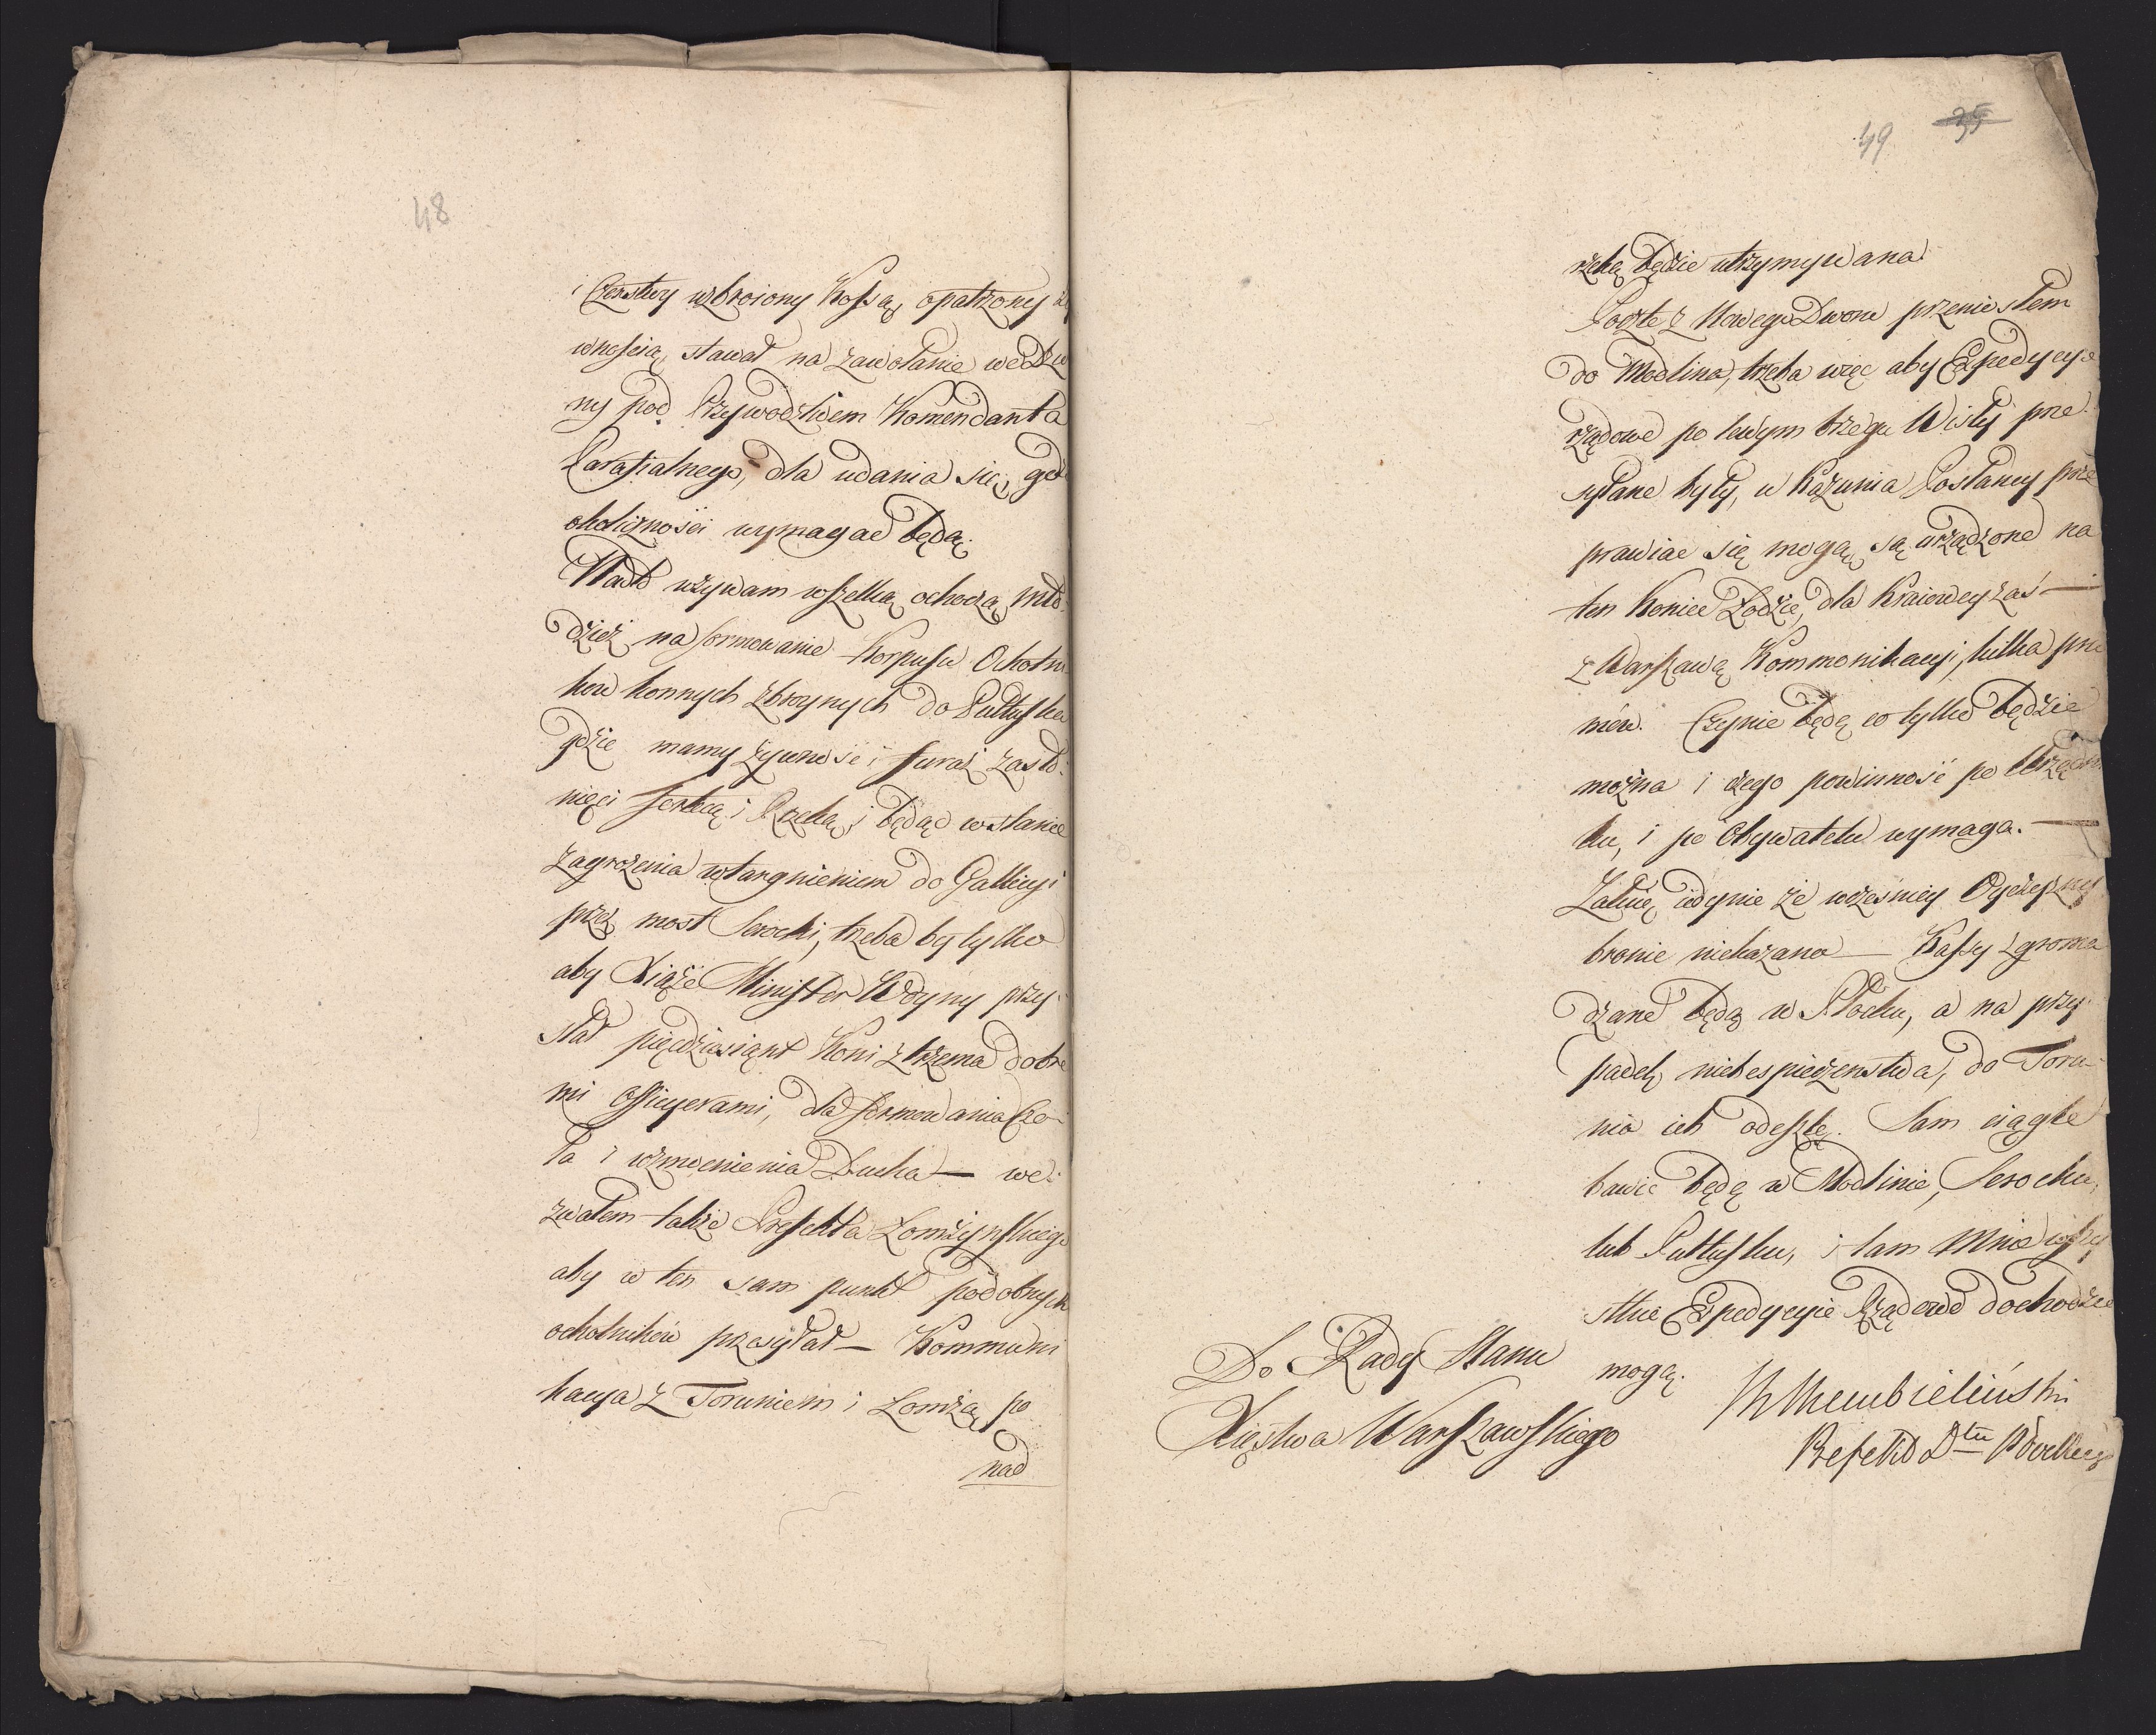 48
i Czerstwy uzbroiony Kossą, opatrzony ży
wnością, stawał na zawołanie
ny pod Przywodztwem Komendanta
Parafialnego, dla udania się, gdz
okoliczności wymagać będą.
Nadto wzywam wszelką ochoczą mło
dzież na formowanie Korpusu Ochotni
kow konnych zbroynych do Pułtuska
gdzie mamy żywność i furaż zasło
nięci fortecą i Rzeką, i będąc wstanie
zagrożenia wtargnieniem do Gallicyi
przez most Serocki, trzeba by tylko
aby Xiąże Minister Woyny przy
słał pięcdziesiąnt Koni z trzema dobre
mi officyerami, dla formowania Czo
ła i wzmocnienia Ducha — we
zwałem także Prefekta Łomżynskiego
aby w ten sam punkt podobnych
ochotników przesyłał — Kommuni
kacya z Toruniem i Łomżą po
nad
49 35
rzeką będzie utrzymywana.
Pocztę z Nowego Dworu przeniosłem
do Modlina, trzeba więc aby Expedycye
rządowe po lewym brzegu Wisły prze
syłane były, u Kazunia Posłańcy prze
prawiać się mogą, są urządzone na
ten Koniec Łodzie, dla Kraiowey zaś —
z Warszawą Kommonikacyi, kilka pro
mów. Czynić będę co tylko będzie
można i czego powinność po Urzędni
ku, i po Obywatelu wymaga. —
Załuię iedynie że wcześniey Oyczyzny
bronić niekazano — Kassy zgroma
dzane będą w Płocku, a na przy
padek niebespieczenstwa, do Toru
nia ich odeszlę. Sam ciągle
bawić będę w Modlinie, Serocku,
lub Pułtusku, i tam Mnie wszy
stkie Expedycyie Rządowe dochodzić
mogą.
Do Rady Stanu
Xięstwa Warszawskiego
Rembieliński
Prefekt Dtu Płockiego